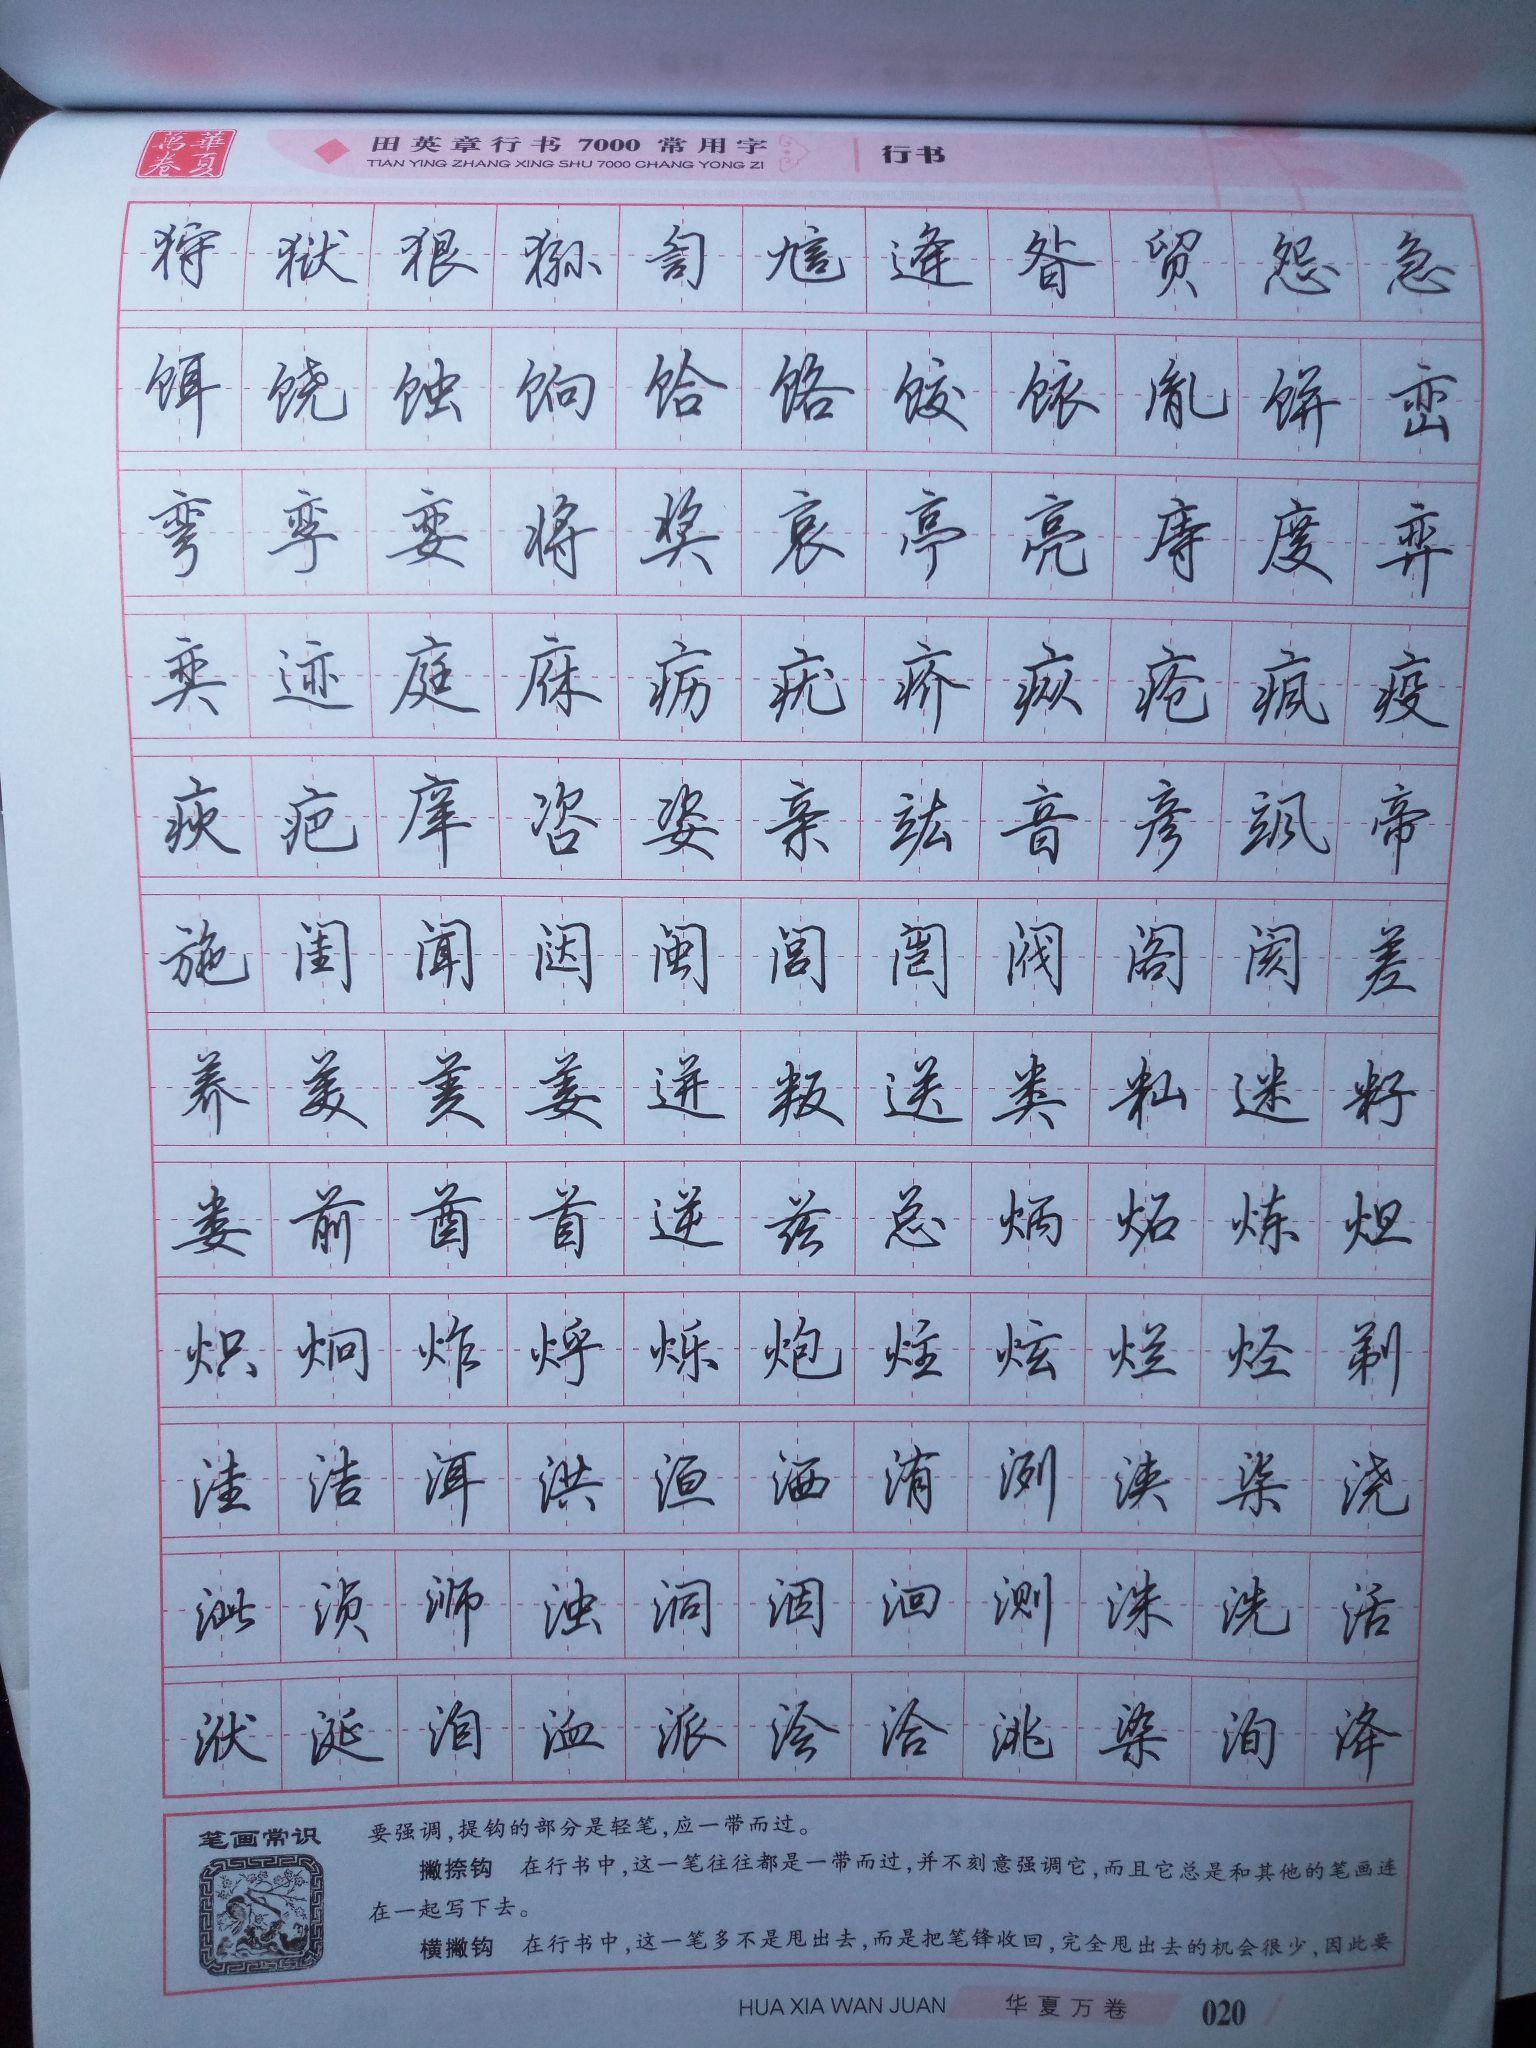 華夏萬卷
田英章行书 7000 常用字
TIAN YING ZHANG XING SHU 7000 CHANG YONG ZI
行书
狩 狱 狠 狲 訇 訄 逄 昝 贸 怨 急
饵 饶 蚀 饷 饸 饹 饺 饻 胤 饼 峦
弯 孪 娈 将 奖 哀 亭 亮 庤 度 弈
奕 迹 庭 庥 疬 疣 疥 疭 疮 疯 疫
疢 疤 庠 咨 姿 亲 竑 音 彦 飒 帝
施 闺 闻 闼 闽 闾 闿 阀 阁 阂 差
养 美 羑 姜 迸 叛 送 类 籼 迷 籽
娄 前 酋 首 逆 兹 总 炳 炻 炼 炟
炽 炯 炸 烀 烁 炮 炷 炫 烂 烃 剃
洼 洁 洱 洪 洹 洒 洧 洌 浃 柒 浇
泚 浈 浉 浊 洞 洇 洄 测 洙 洗 活
洑 涎 洎 洫 派 浍 洽 洮 染 洵 洚
笔画常识
要强调,提钩的部分是轻笔,应一带而过。
撇捺钩 在行书中,这一笔往往都是一带而过,并不刻意强调它,而且它总是和其他的笔画连
在一起写下去。
横撇钩 在行书中,这一笔多不是甩出去,而是把笔锋收回,完全甩出去的机会很少,因此要
HUA XIA WAN JUAN 华夏万卷 020